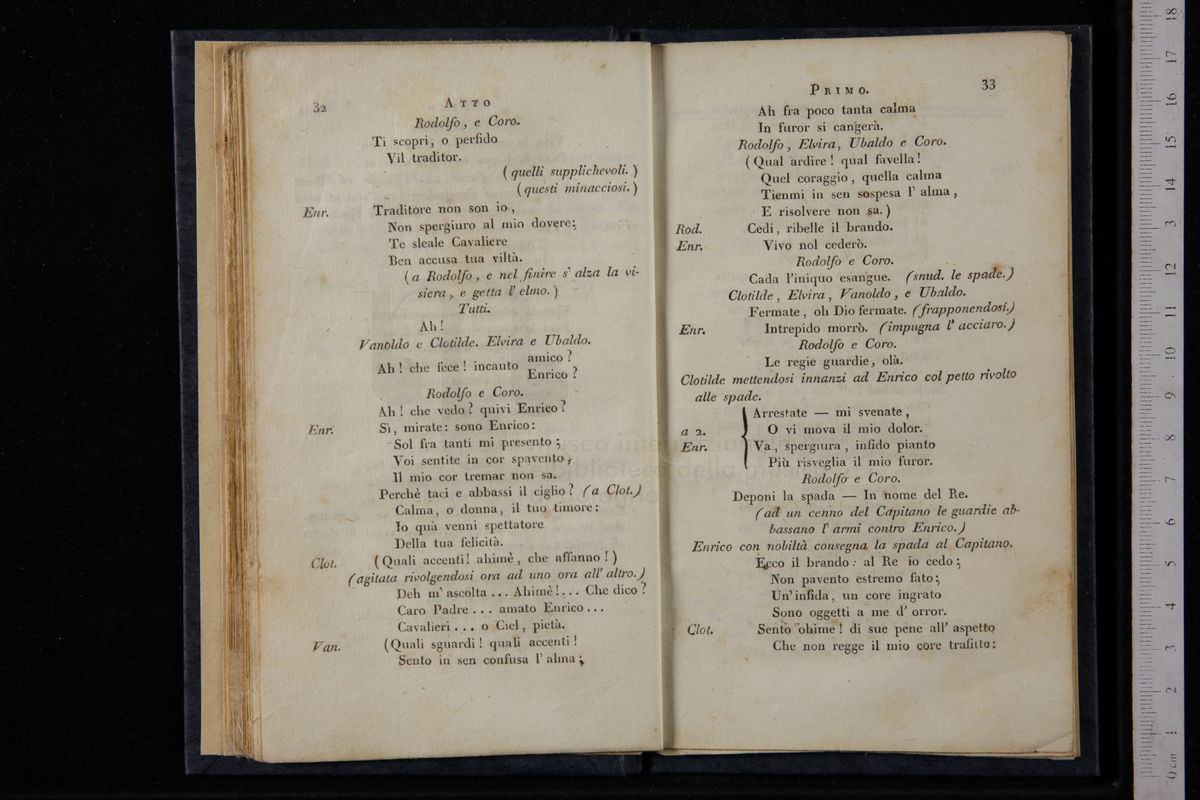 32
Atto
Rodolfo, e Coro.
Ti scopri, o perfido
Vil traditor.
( quelli supplichevoli. )
( questi minacciosi. )
Enr. Traditore non son io,
Non spergiuro al mio dovere;
Te sleale Cavaliere
Ben accusa tua viltà.
( a Rodolfo, e nel finire s' alza la vi-
siera, e getta l' elmo. )
Tutti.
Ah!
Vanoldo e Clotilde. Elvira e Ubaldo.
Ah! che fece! incauto amico?
Enrico?
Rodolfo e Coro.
Ah! che vedo? quivi Enrico?
Enr. Sì, mirate: sono Enrico:
Sol fra tanti mi presento;
Voi sentite in cor spavento,
Il mio cor tremar non sa.
Perchè taci e abbassi il ciglio? (a Clot.)
Calma, o donna, il tuo timore:
Io quà venni spettatore
Della tua felicità.
Clot. (Quali accenti! ahimè, che affanno!)
(agitata rivolgendosi ora ad uno ora all' altro.)
Deh m' ascolta ... Ahimè!... Che dico?
Caro Padre ... amato Enrico ...
Cavalieri ... o Ciel, pietà.
Van. (Quali sguardi! quali accenti!
Sento in sen confusa l' alma;
Primo.
33
Ah fra poco tanta calma
In furor si cangerà.
Rodolfo, Elvira, Ubaldo e Coro.
(Qual ardire! qual favella!
Quel coraggio, quella calma
Tienmi in sen sospesa l' alma,
E risolvere non sa.)
Rod. Cedi, ribelle il brando.
Enr. Vivo nol cederò.
Rodolfo e Coro.
Cada l'iniquo esangue. (snud. le spade.)
Clotilde, Elvira, Vanoldo, e Ubaldo.
Fermate, oh Dio fermate. (frapponendosi.)
Enr. Intrepido morrò. (impugna l' acciaro.)
Rodolfo e Coro.
Le regie guardie, olà.
Clotilde mettendosi innanzi ad Enrico col petto rivolto
alle spade.
Arrestate — mi svenate,
a 2. O vi mova il mio dolor.
Enr. Va, spergiura, infido pianto
Più risveglia il mio furor.
Rodolfo e Coro.
Deponi la spada — In nome del Re.
(ad un cenno del Capitano le guardie ab-
bassano l' armi contro Enrico.)
Enrico con nobiltà consegna la spada al Capitano.
Ecco il brando: al Re io cedo;
Non pavento estremo fato;
Un' infida, un core ingrato
Sono oggetti a me d' orror.
Clot. Sento ohime! di sue pene all' aspetto
Che non regge il mio core trafitto: